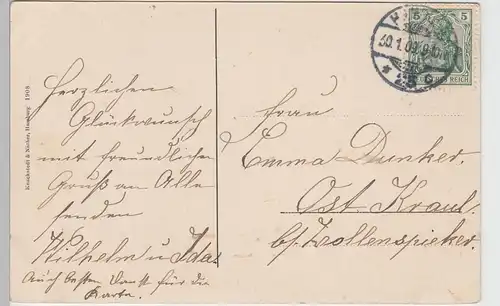 Herzlichen
Glückwunsch
mit freundlichen
Gruß an Alle
senden
Wilhelm u Ida.
Auch besten Dank für die
Karte.
Knackstedt & Näther, Hamburg 1908
Frau
Emma Dunker.
Ost. Kraul.
b/ Zollenspieker.
5 5
30.1.09
REICH